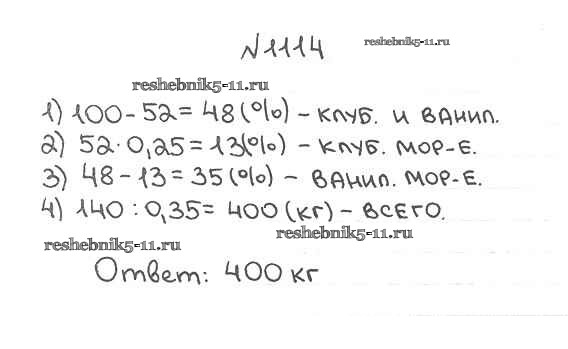 №1114
reshebnik5-11.ru
reshebnik5-11.ru
1) 100 - 52 = 48 (%) - клуб. и ванил.
2) 52 · 0,25 = 13 (%) - клуб. мор-е.
3) 48 - 13 = 35 (%) - ванил. мор-е.
4) 140 : 0,35 = 400 (кг) - всего.
reshebnik5-11.ru
reshebnik5-11.ru
Ответ: 400 кг